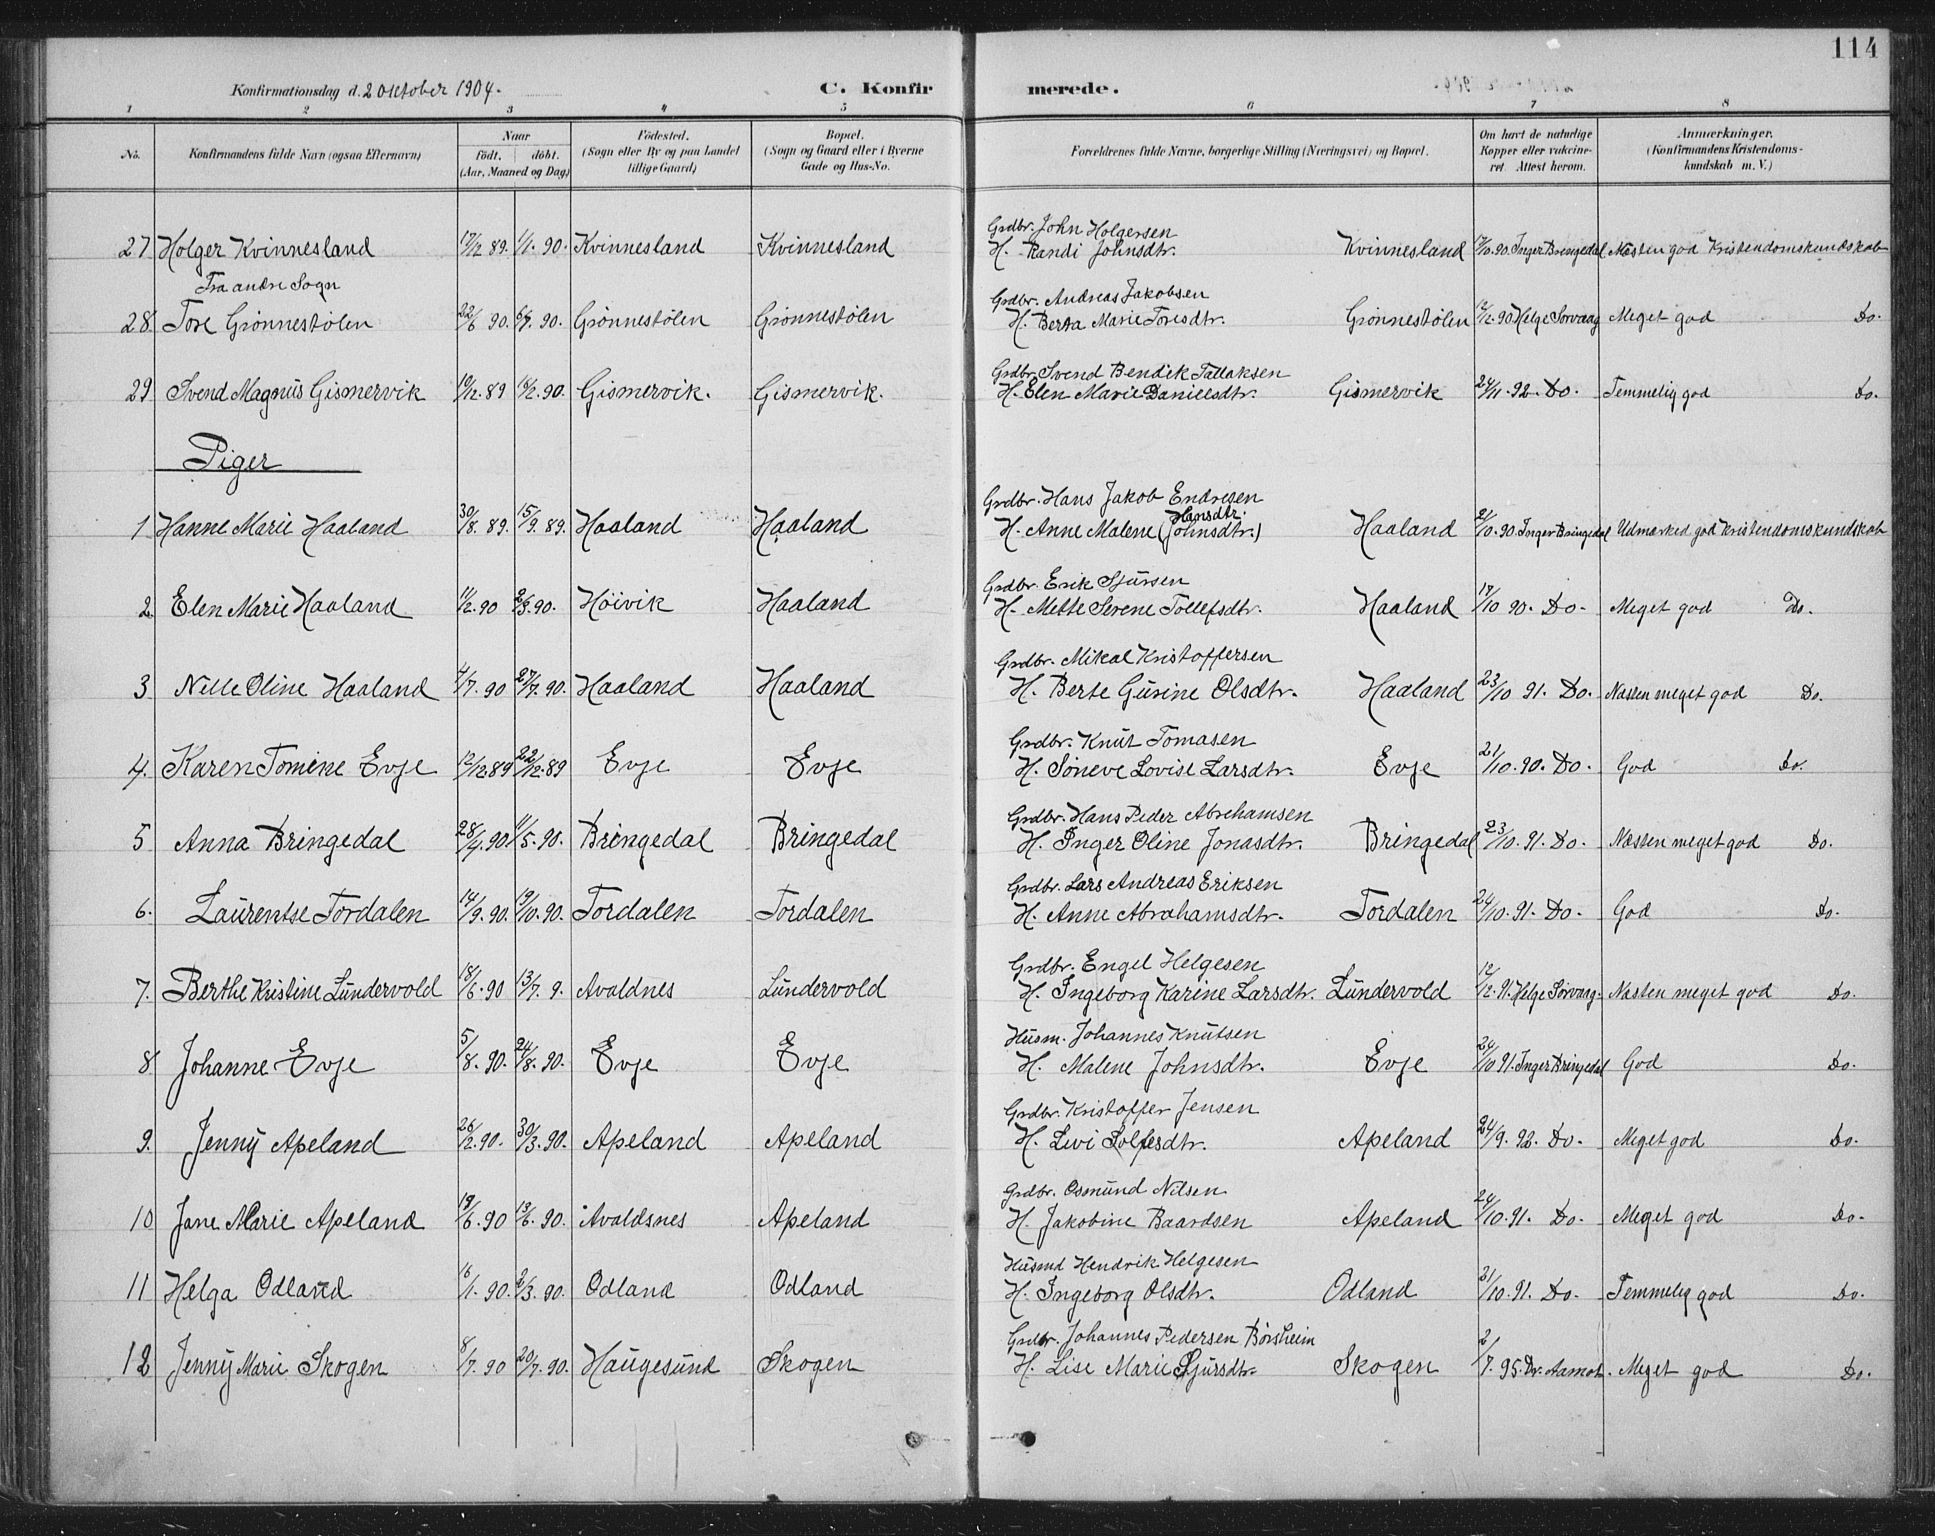 114
Konfirmationsdag d. 2 Oktober 1904.
C. Konfirmerede.
1 2 3 4 5 6 7 8
No. Konfirmandens fulde Navn (ogsaa Efternavn) Naar födt. döbt. (Aar, Maaned og Dag) Födested. (Sogn eller By og paa Landet tillige Gaard) Bopæl. (Sogn og Gaard eller i Byerne Gade og Hus-No. Forældrenes fulde Navne, borgerlige Stilling (Næringsvei) og Bopæl. Om havt de naturlige Kopper eller vakcineret. Attest herom. Anmærkninger. (Konfirmandens Kristendomskundskab m. V.)
Grdbr. John Holgersen
27 Holger Kvinnesland 17/12 89. 1/1. 90. Kvinnesland Kvinnesland H. Randi Johnsdtr. Kvinnesland 17/10. 90. Inger Bringedal Næsten god Kristendomskundskab
Fra andre Sogn
Grdbr. Andreas Jakobsen
28 Tore Grönnestölen 22/6 90. 6/7. 90. Grönnestölen Grönnestölen H. Berta Marie Toresdtr. Grönnestölen 12/12. 90 Helge Sorvaag Meget god Do.
Grdbr. Svend Bendik Tallaksen
29 Svend Magnus Gismervik 19/12. 89 16/2. 90. Gismervik. Gismervik. H. Elen Marie Danielsdtr. Gismervik 24/11. 92. Do. Temmelig god Do.
Piger
Grdbr. Hans Jakob Endresen
Hansdtr.
1 Hanne Marie Haaland 30/8. 89. 15/9. 89. Haaland Haaland H. Anne Malene (Johnsdtr.) Haaland 21/10. 90. Inger Bringedal Udmærked god Kristendomskundskab
Grdbr. Erik Sjursen
2 Elen Marie Haaland 11/2. 90 2/3. 90. Höivik Haaland H. Mette Serene Tollefsdtr. Haaland 17/10 90. Do. Meget god Do.
Grdbr. Mikal Kristoffersen
3 Nelle Oline Haaland 4/7. 90 27/7. 90. Haaland Haaland H. Berte Gurine Olsdtr. Haaland 23/10 91. Do. Næsten meget god Do.
Grdbr. Knut Tomasen
4. Karen Tomine Evje 12/12 89 22/12. 89 Evje Evje H. Söneve Lovise Larsdtr. Evje 21/10. 90. Do. God Do.
Grdbr. Hans Peder Abrahamsen
5 Anna Bringedal 28/4. 90 11/5. 90. Bringedal Bringedal H. Inger Oline Jonasdtr. Bringedal 23/10. 91. Do. Næsten meget god Do.
Grdbr. Lars Andreas Eriksen
6. Laurentse Tordalen 14/9. 90. 19/10. 90. Tordalen Tordalen H. Anne Abrahamsdtr. Tordalen 24/10. 91. Do. God Do.
Grdbr. Engel Helgesen
7. Berthe Kristine Lundervold 18/6. 90 13/7. 9. Avaldnes Lundervold H. Ingeborg Karine Larsdtr. Lundervold 12/12. 91. Helge Sorvaag. Næsten meget god Do.
Husm. Johannes Knutsen
8 Johanne Evje 5/8. 90. 24/8. 90. Evje Evje H. Malene Johnsdtr. Evje 24/10 91. Inger Bringedal God Do.
Grdbr. Kristoffer Jensen
9. Jenny Apeland 26/2. 90. 30/3. 90. Apeland Apeland H. Livi Apeland 24/9. 92. Do. Meget god Do.
Grdbr. Osmund Nilsen
10 Jane Marie Apeland 90 90. Avaldsnes Apeland H. Jakobine Baardsen Apeland 24/10. 91. Do. Meget god Do.
Husmd Hendrik Helgesen
11 Helga Odland 16/1. 90. 2/3. 90. Odland Odland H. Ingeborg Olsdtr. Odland 21/10. 91. Do. Temmelig god Do.
Grdbr. Johannes Pedersen Börsheim
12 Jenny Marie Skogen 8/7. 90 20/7. 90. Haugesund Skogen H. Lise Marie Sjursdtr. Skogen 2/7. 95. Dr. Aamot. Meget god Do.